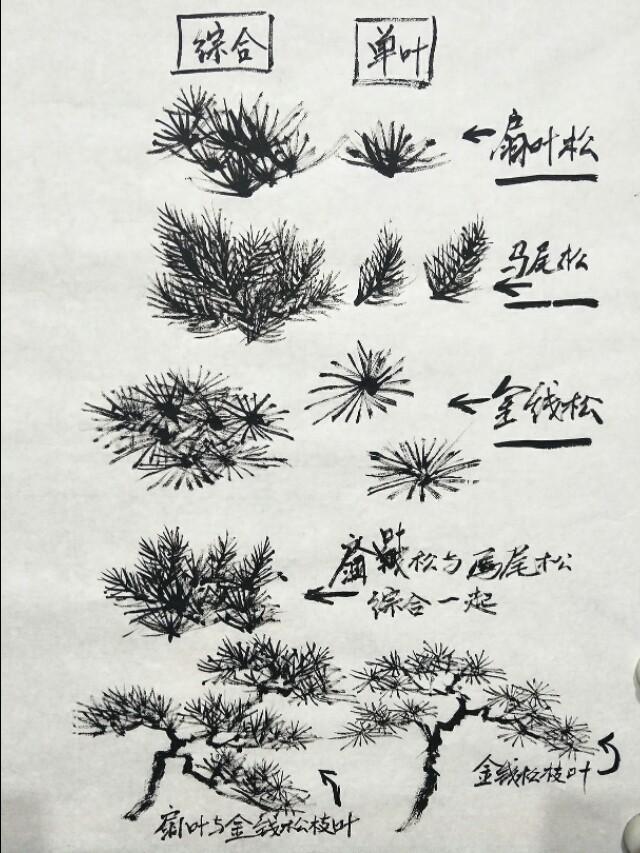 综合
单叶
扇叶松
马尾松
金钱松
扇叶松与马尾松
综合一起
金钱松枝叶
扇叶与金钱松枝叶